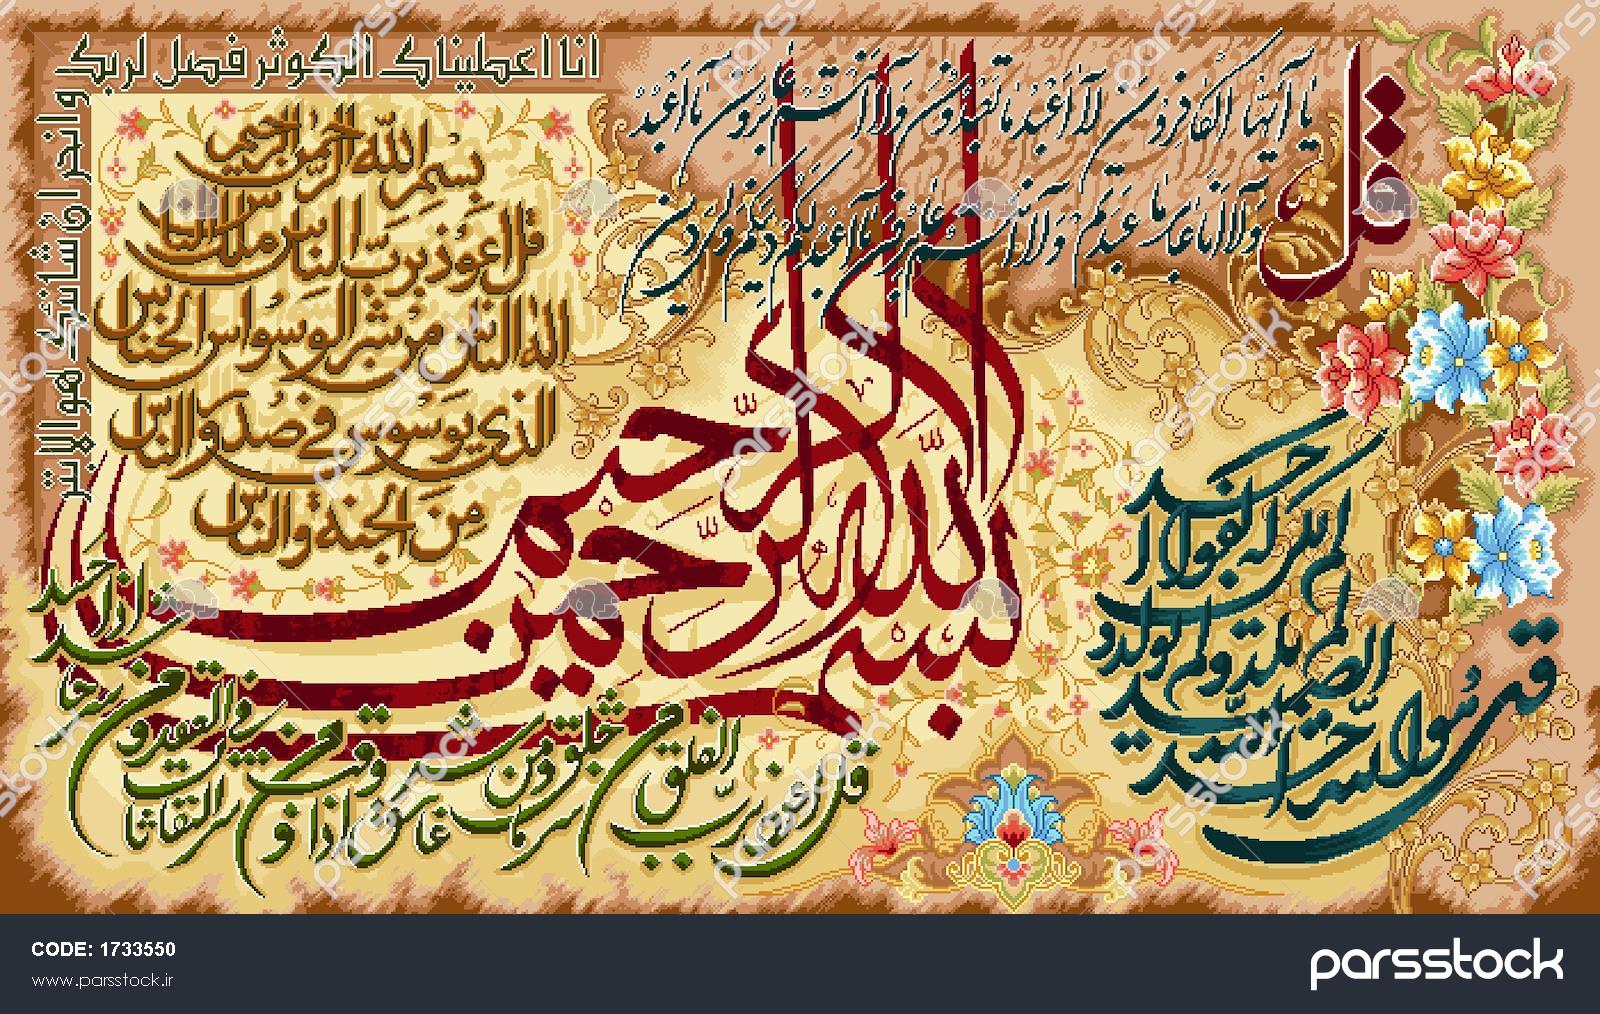 انا اعطیناك الكوثر فصل لربك
وانحر ان شانئك هو الابتر
قل
یا أیها الكافرون لا أعبد ما تعبدون ولا أنتم عابدون ما أعبد
ولا أنا عابد ما عبدتم ولا أنتم عابدون ما أعبد لكم دینكم ولی دین
بسم الله الرحمن الرحیم
قل اعوذ برب الناس ملك الناس
اله الناس من شر الوسواس الخناس
الذی یوسوس فی صدور الناس
من الجنة والناس
بسم الله الرحمن الرحیم
قل هو الله احد
الله الصمد لم یلد ولم یولد و
لم یكن له كفوا احد
قل اعوذ برب الفلق من شر ما خلق ومن شر
غاسق اذا وقب ومن شر النفاثات
فی العقد ومن شر حاسد
اذا حسد
CODE: 1733550
www.parsstock.ir
parsstock